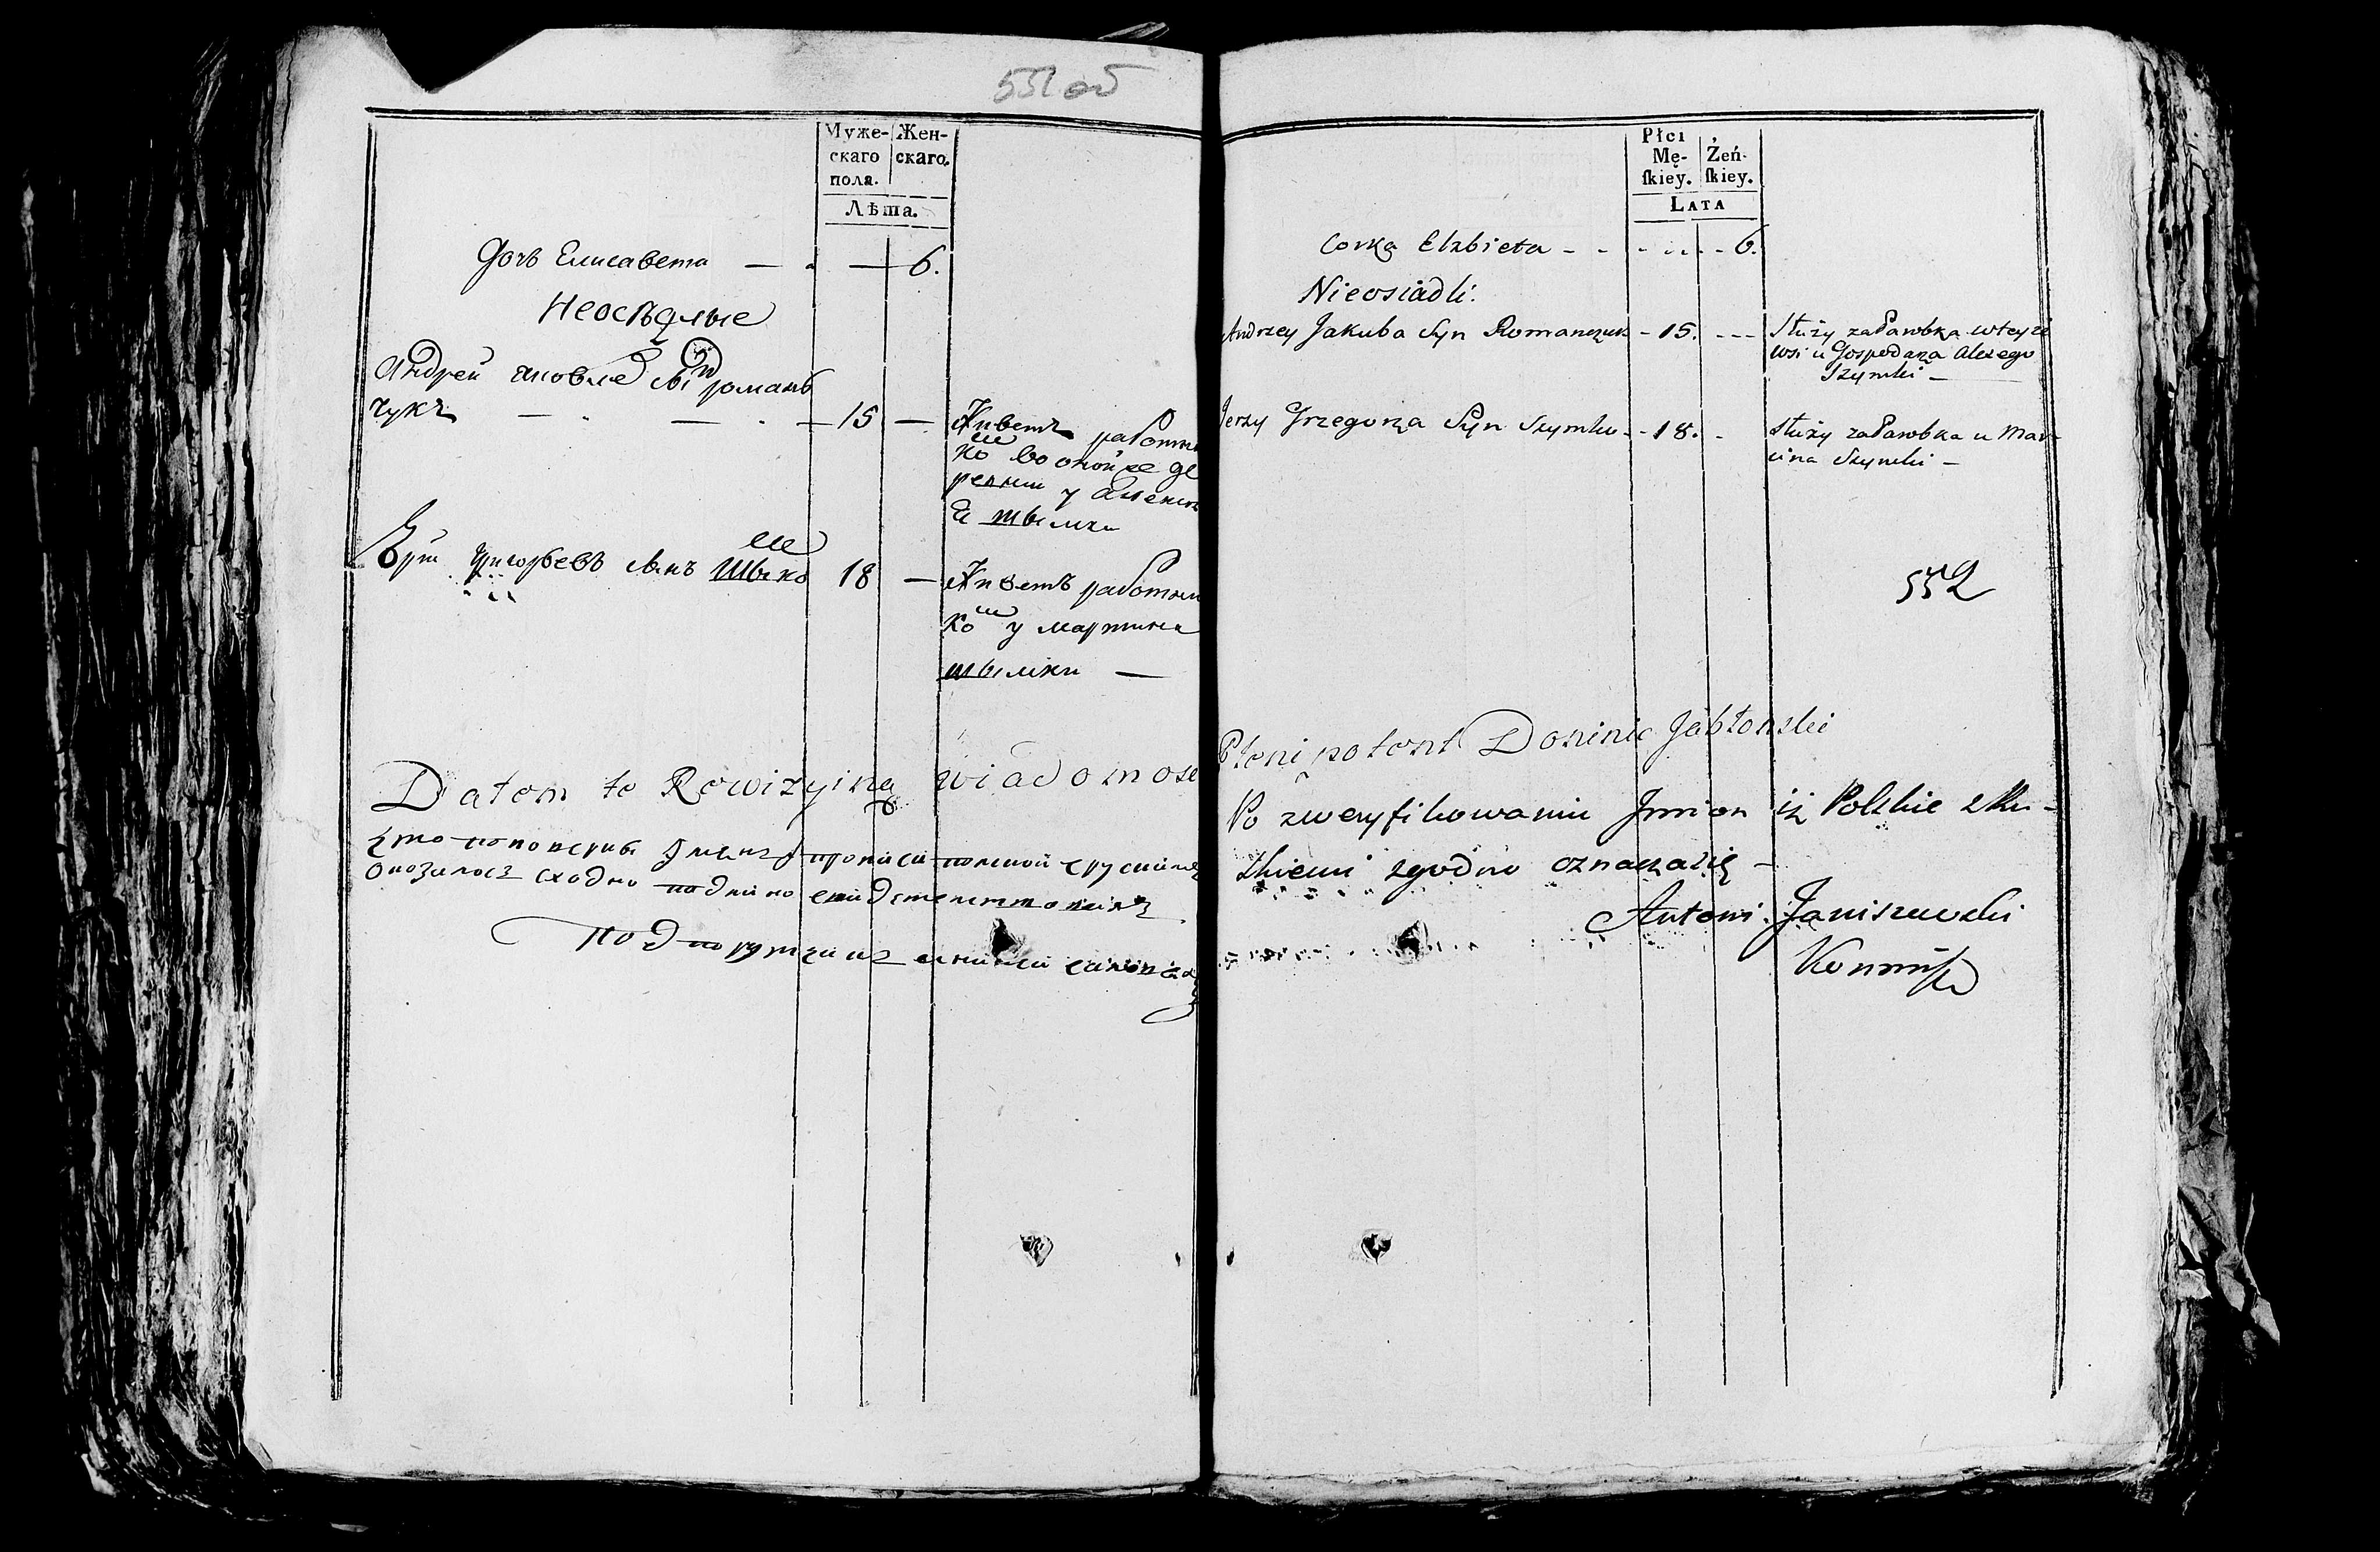 551 об
Муже- Жен-
скаго скаго.
пола.
Лѣта.
Дочь Елисавета — — 6.
Неосѣдлые
Андрей Яковлев сын роман
чукъ — — 15 —
Живетъ работни
ком во оной же де
ревни у Алексѣ
я шымки
Юри Григорьевъ сынъ Шымко 18 —
Живетъ работни
ком у мартина
шымки —
Datem te Rewizyiną wiadomosc
что по поверке имянъ прописи полской с рускимъ
оказалось сходно
Płci
Mę- Żeń-
skiey. skiey.
LATA
Corka Elzbieta - - - - - 6.
Nieosiadli:
Andrzey Jakuba Syn Romanczuk - 15. ---
Służy za Parobka w teyze
wsi u Gospodarza Alexego
Szymki —
Jerzy Grzegorza Syn Szymko - - 18. -
Służy za Parobka u Mar-
cina Szymki —
552
Plenipotent Dominic Jabłonski
Po zweryfikowaniu Jmion iż Polskie z Ru-
skiemi zgodno oznacza się —
Antoni Janiszewski